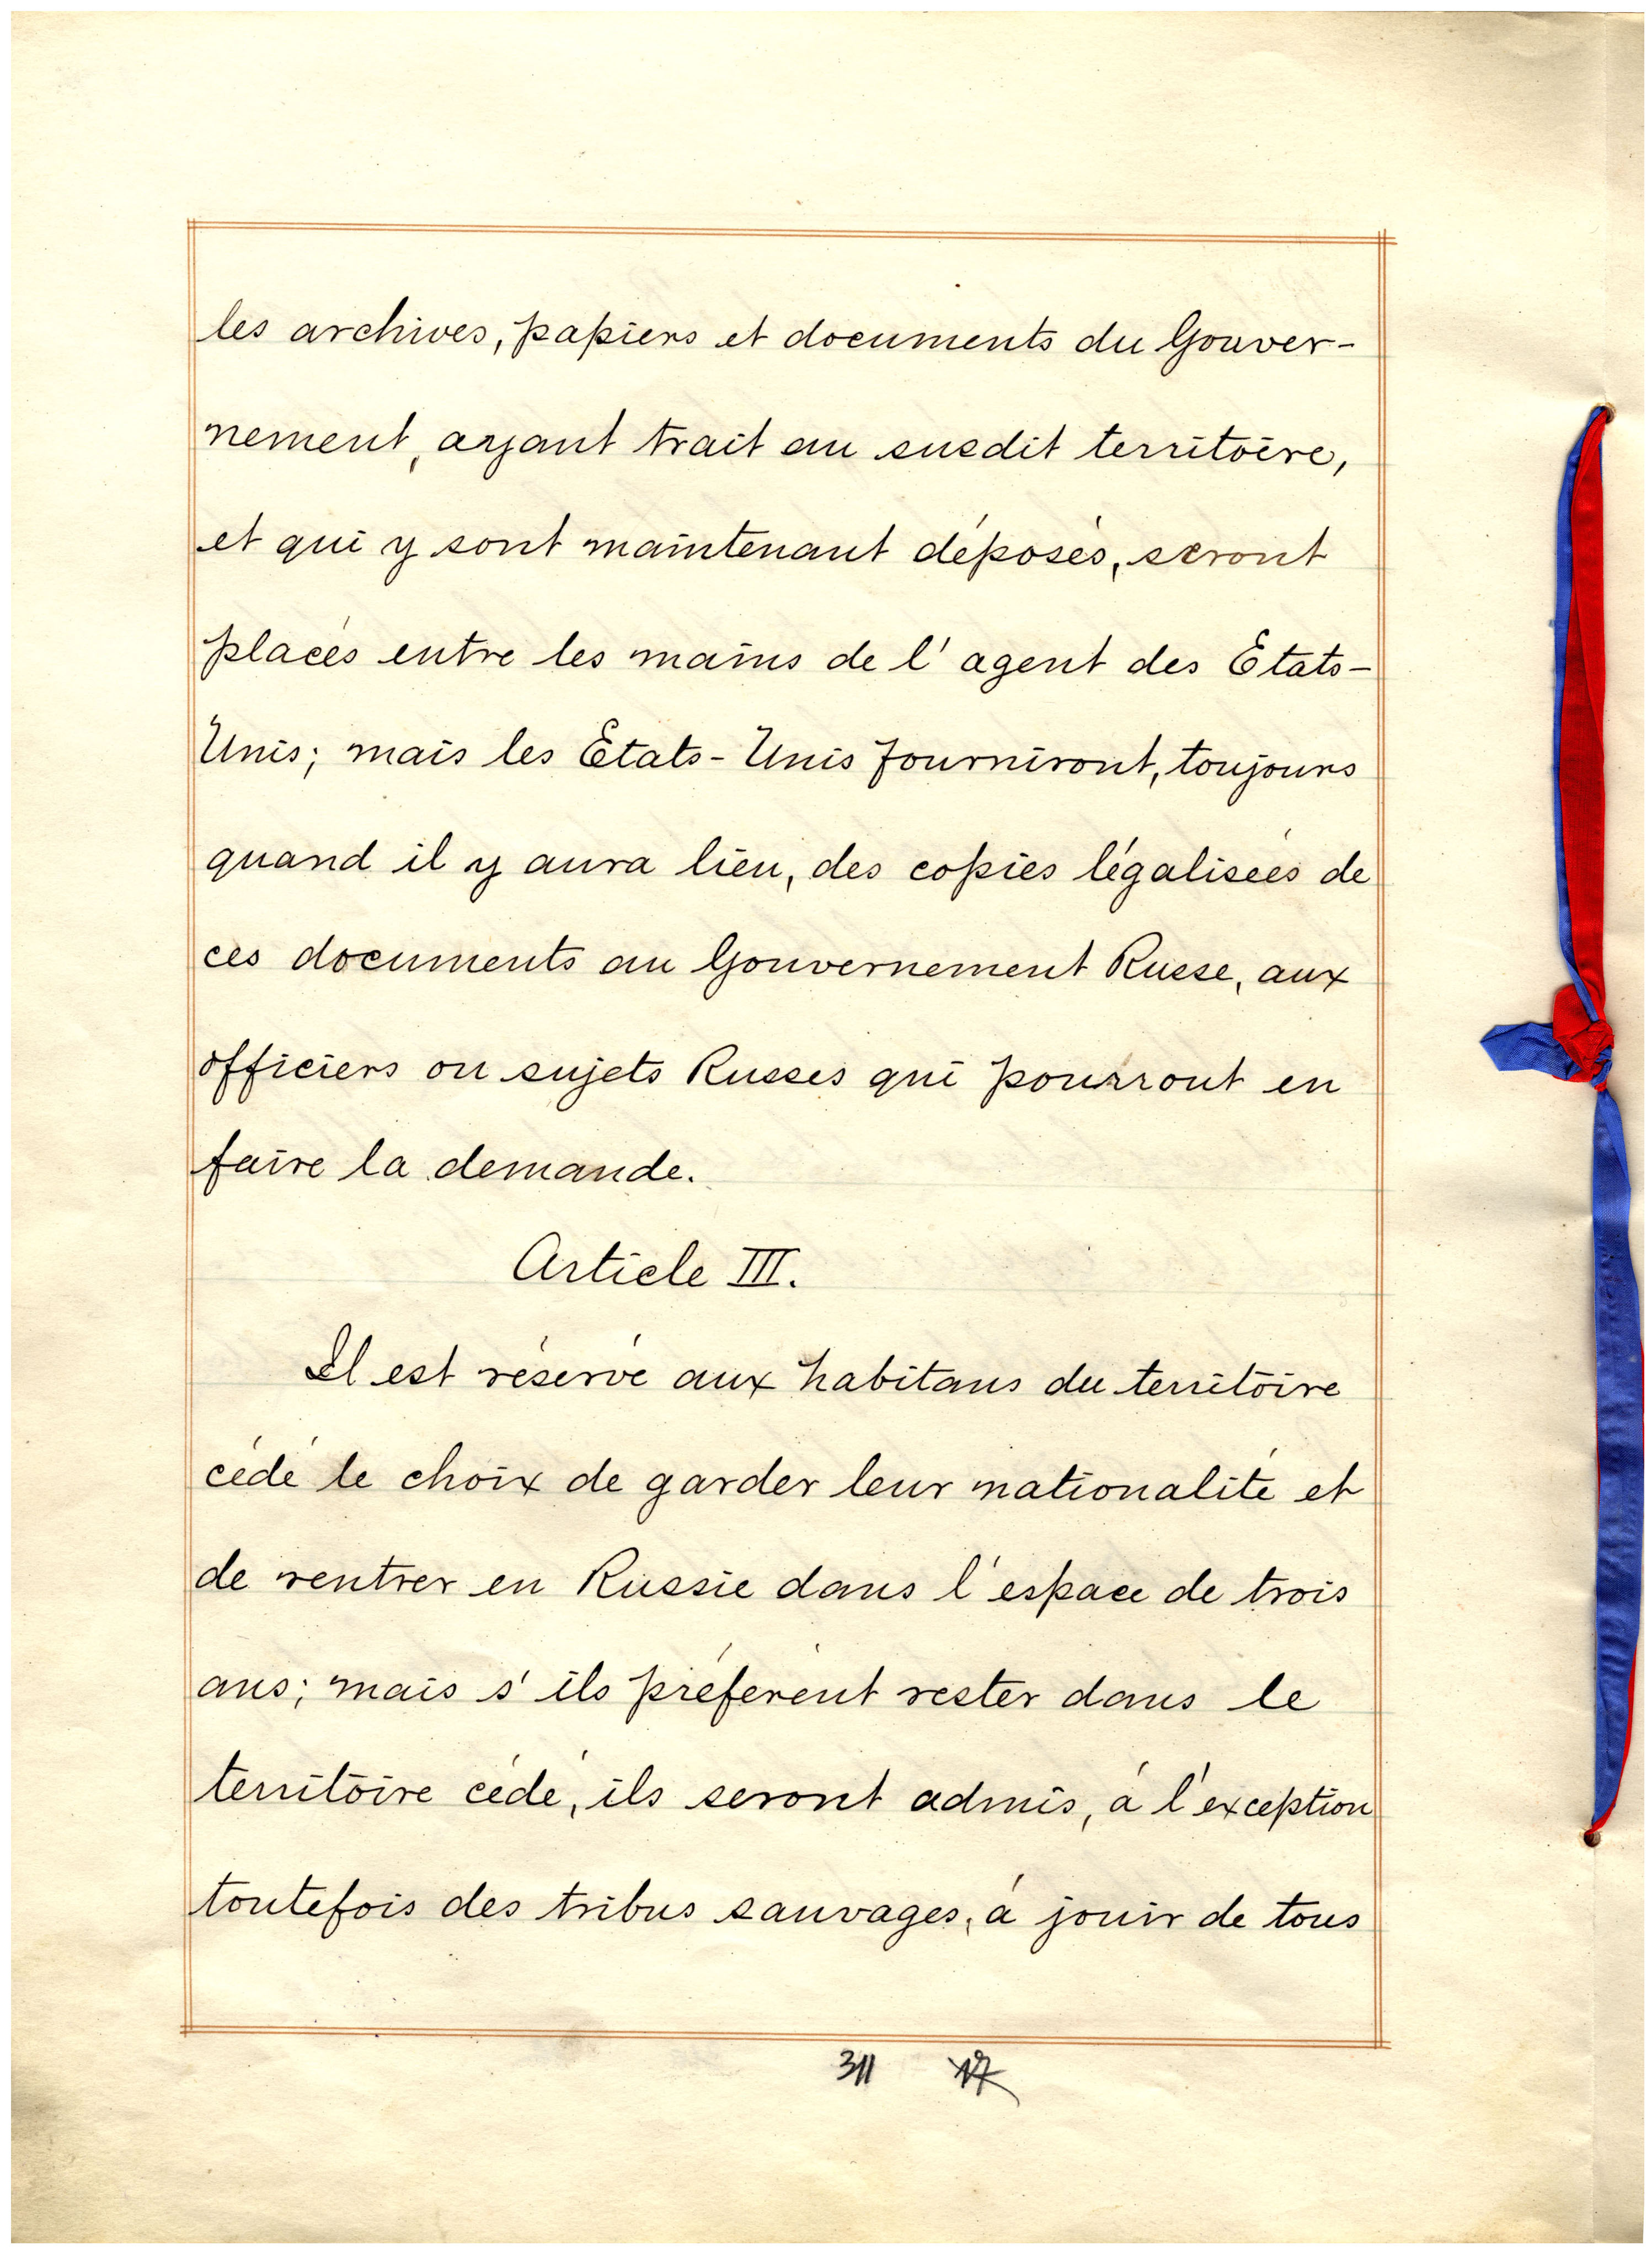 les archives, papiers et documents du Gouver-
nement, ayant trait au susdit territoire,
et qui y sont maintenant déposés, seront
placés entre les mains de l'agent des Etats-
Unis; mais les Etats-Unis fourniront, toujours
quand il y aura lieu, des copies légalisées de
ces documents au Gouvernement Russe, aux
officiers ou sujets Russes qui pourront en
faire la demande.
Article III.
Il est réservé aux habitans du territoire
cédé le choix de garder leur nationalité et
de rentrer en Russie dans l'espace de trois
ans; mais s'ils préfèrent rester dans le
territoire cédé, ils seront admis, à l'exception
toutefois des tribus sauvages, à jouir de tous
311 17